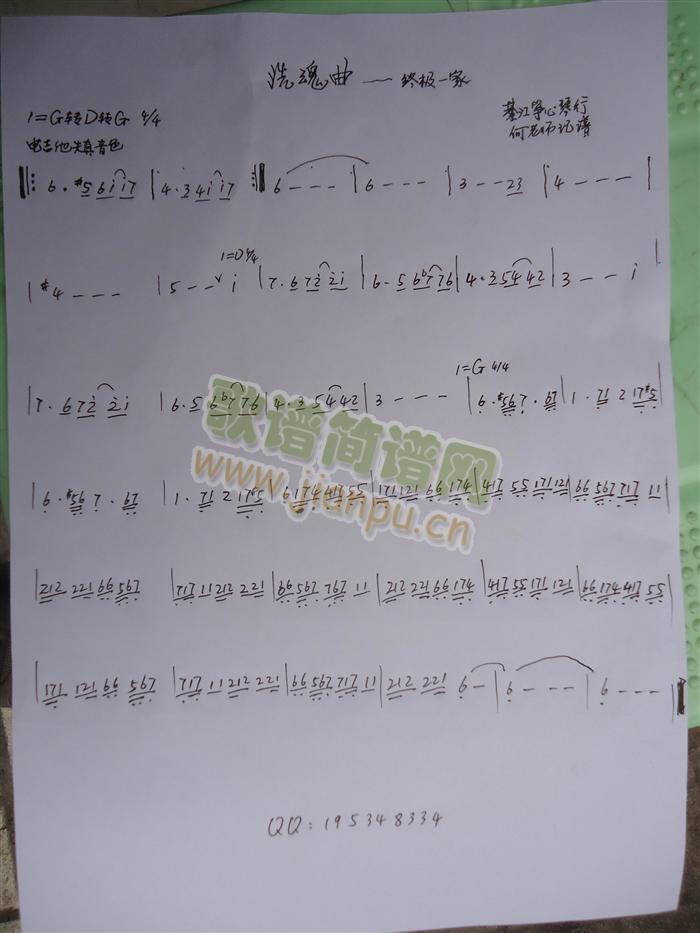 洗魂曲 —— 终极一家
1=G转D转G 4/4
綦江争心琴行
电吉他失真音色
何老师记谱
‖: 6· #5 6i i7 | 4·3 4i i7 :‖ 6 - - - | 6 - - - | 3 - - 23 | 4 - - - |
1=D 4/4
| #4 - - - | 5 - - ∨ i | 7·6 72 2i | 6·5 6b7 76 | 4·3 54 42 | 3 - - i |
1=G 4/4
| 7·6 72 2i | 6·5 6b7 76 | 4·3 54 42 | 3 - - - | 6·#56 7·67 | 1·71 2 17#5 |
| 6·#56 7·67 | 1·71 2 17#5 | 6 174 417 55 | 171 121 66 174 | 417 55 171 121 | 66 567 717 11
| 212 221 66 567 | 717 11 212 221 | 66 567 767 11 | 212 221 66 174 | 417 55 171 121 | 66 174 417 55 |
| 171 121 66 567 | 717 11 212 221 | 66 567 717 11 | 212 221 6 - | 6 - - - | 6 - - - ‖
歌谱简谱网
www.jianpu.cn
QQ: 195348334